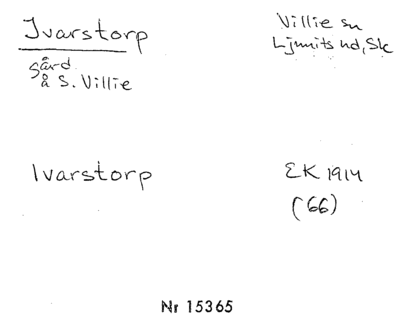 Ivarstorp
Villie sn
Ljunits hd, Sk
gård
å S. Villie
Ivarstorp
EK 1914
(66)
Nr 15365